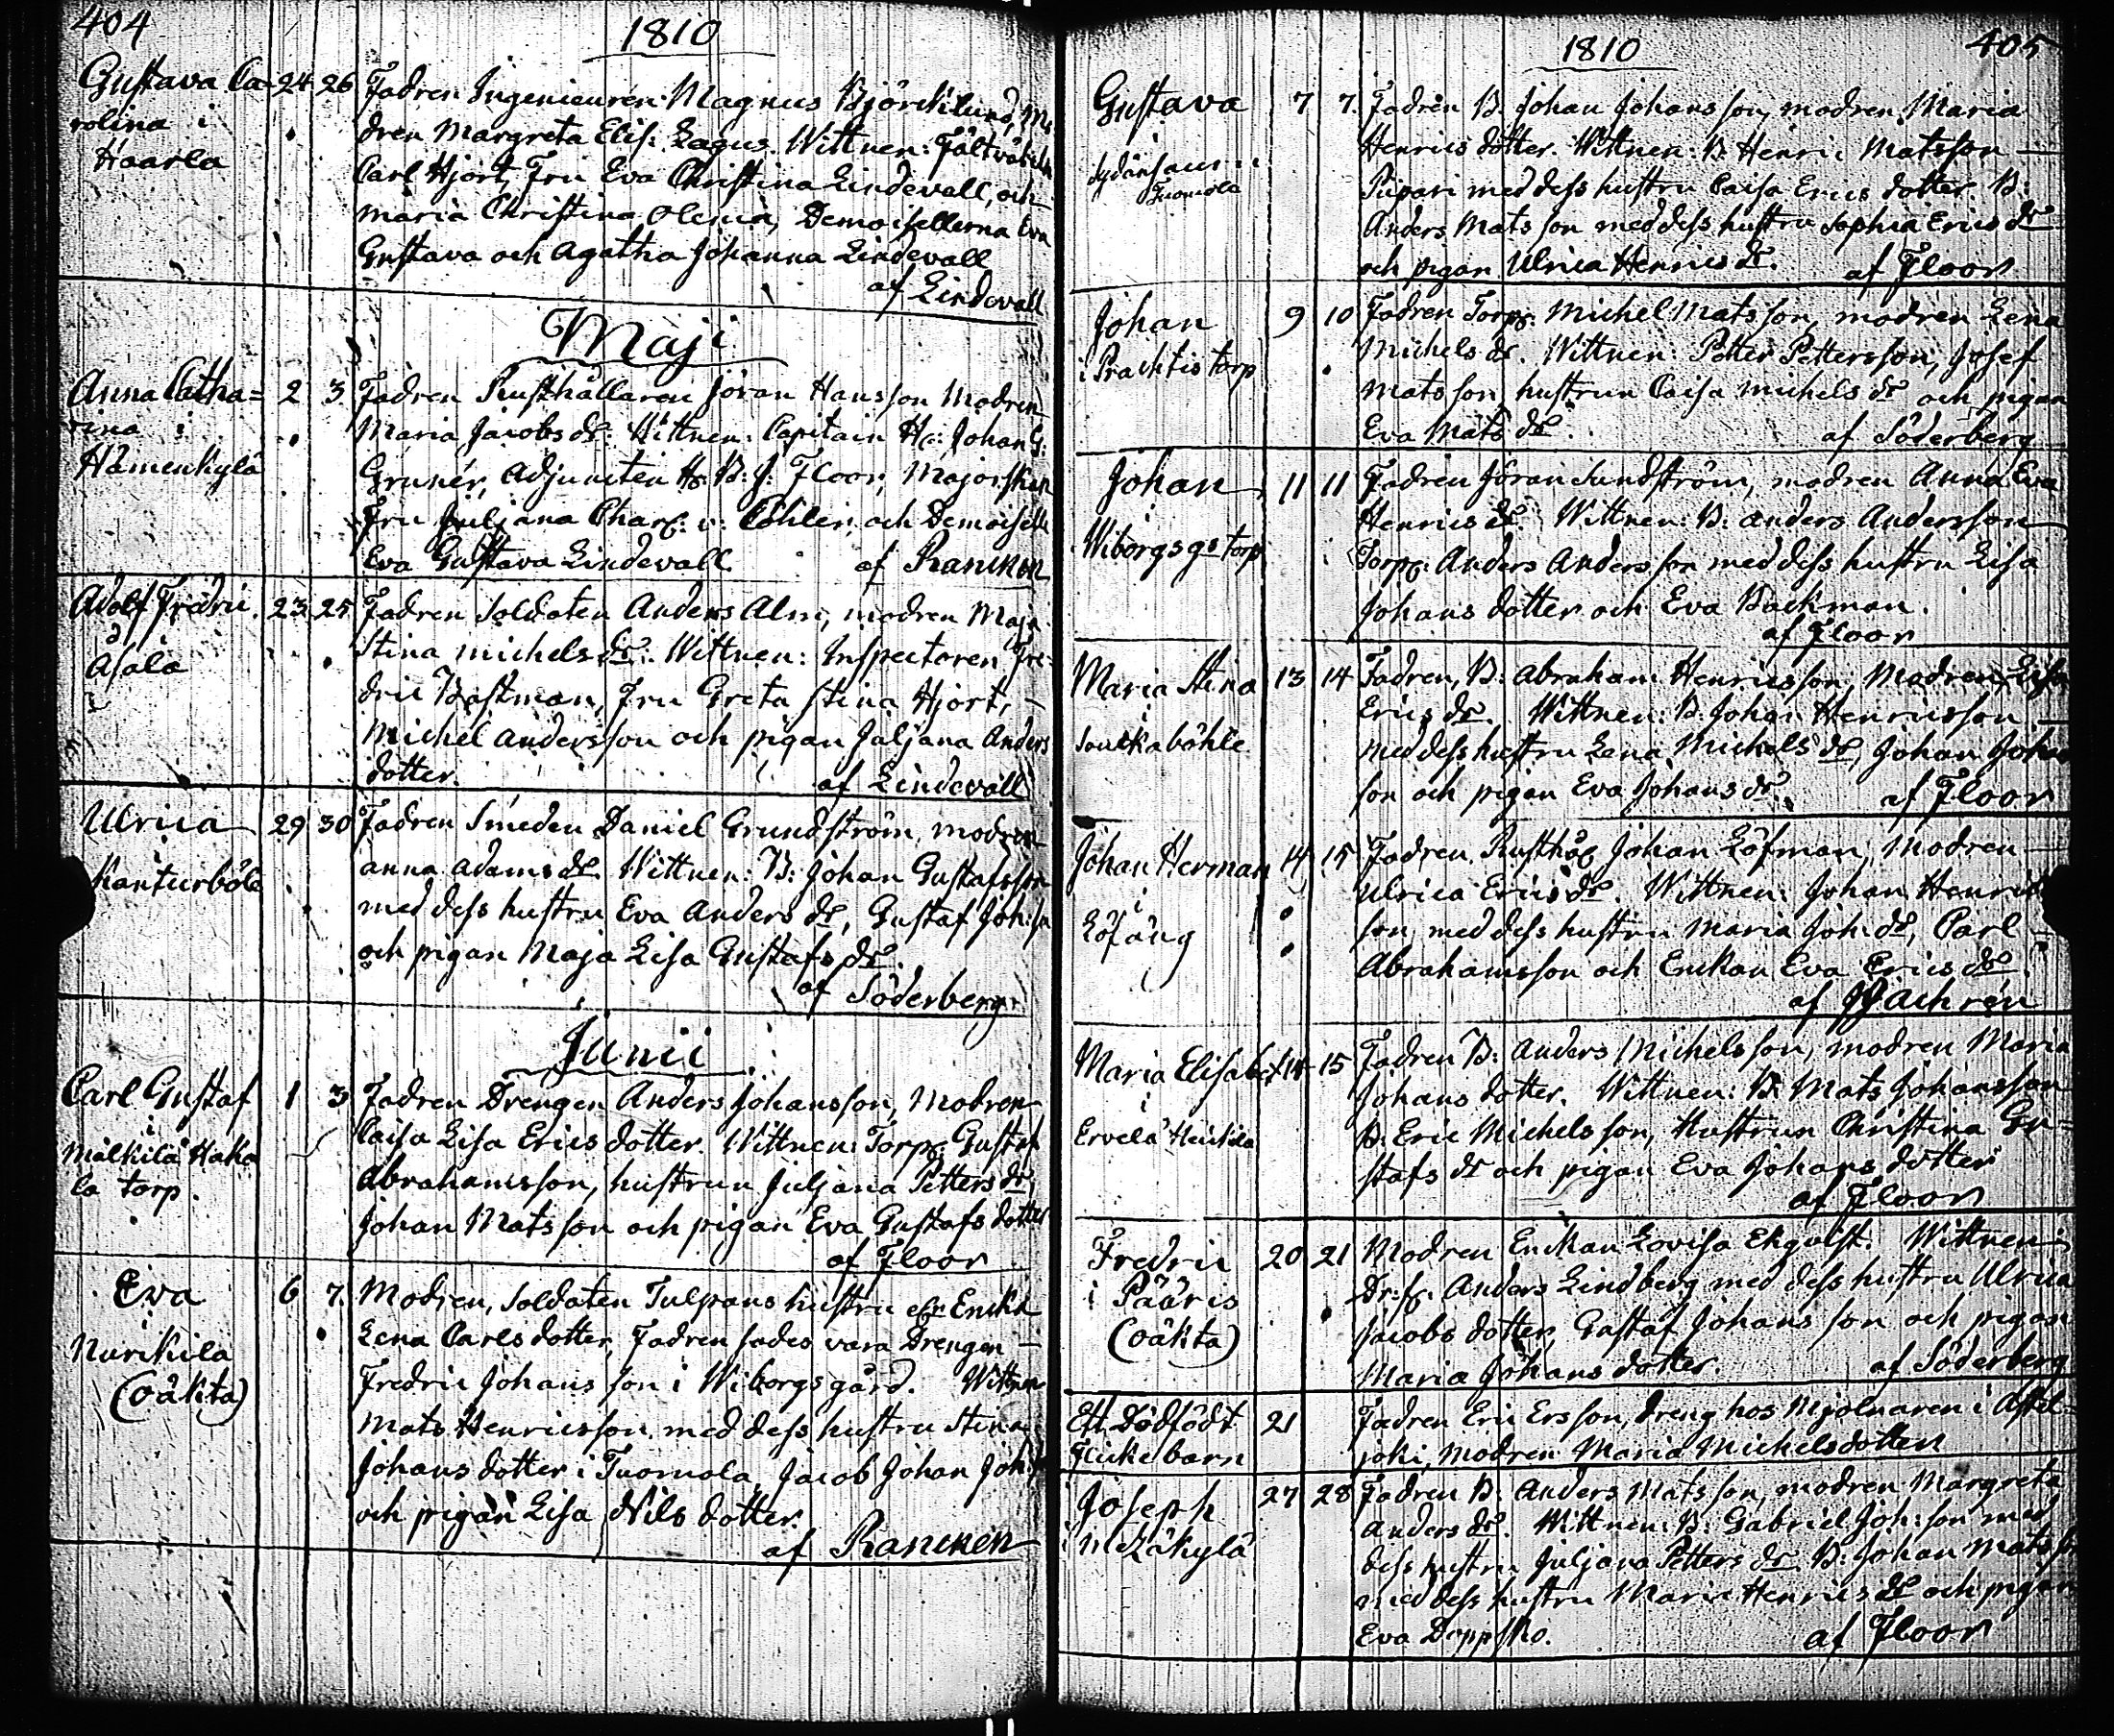 404
1810
Gustava Ca- 24 26 Fadren Ingenieuren Magnus Björcklund, Mo-
rolina i dren Margreta Elis: Zagus. Wittnen: Fältväbeln
Haarla Carl Hjort, Fru Eva Christina Lindevall, och
Maria Christina Olenia, Demoisellerna Eva
Gustava och Agatha Johanna Lindevall
af Lindevall
Maji
Anna Catha= 2 3 Fadren Rusthållaren Jöran Hansson Modren
rina i Maria Jacobs dr: Wittnen: Capitain Hr: Johan G:
Hämenkylä Grunér, Adjuncten Hr B: J: Floor, Majorskan
Fru Juljana Charl: v: Cöhler och Demoiselle
Eva Gustava Lindevall. af Rancken
Adolf Fredric 23 25 Fadren Soldaten Anders Alm, modren Maja
i Stina Michels dr. Wittnen: Inspectoren Fre-
Asala dric Bastman, Fru Greta Stina Hjort,
Michel Andersson och pigan Juljana Anders
dotter. af Lindevall
Ulrica 29 30 Fadren Smeden Daniel Grundström, modren
i Anna Adams dr. Wittnen: B: Johan Gustafsson
Kanturböle med dess hustru Eva Anders dr, Gustaf Joh: son
och pigan Maja Lisa Gustafs dr.
af Söderberg
Junii
Carl Gustaf 1 3 Fadren Drengen Anders Johansson, Modren
i Caisa Lisa Erics dotter. Wittnen: Torp: Gustaf
Mälkilä Haka Abrahamsson, hustrun Juljana Petters dr,
la torp. Johan Matsson och pigan Eva Gustafs dotter
af Floor
Eva 6 7. Modren, Soldaten Tulpans hustru efr Enka
i Lena Carls dotter, Fadren sades vara Drengen
Nurckila Fredric Johansson i Wiborgsgård. Wittnen
(oäkta) Mats Henricsson med dess hustru Stina
Johans dotter i Tuomola, Jacob Johan Joh: son
och pigan Lisa Nils dotter.
af Rancken
1810 405
Gustava 7 7. Fadren B. Johan Johansson, modren Maria
i Henrics dotter. Wittnen: B Henric Matsson
Sydänsaur Pispari med dess hustru Caisa Erics dotter B:
Tuomola Anders Matsson med dess hustru Sophia Erics dr
och pigan Ulrica Henrics dr. af Floor
Johan 9 10 Fadren Torp: Michel Matsson, modren Lena
i Prachtis torp Michels dr. Wittnen: Petter Pettersson, Josef
Matsson, hustrun Caisa Michels dr och pigan
Eva Mats dr. af Söderberg
Johan 11 11 Fadren Jöran Sundström, modren Anna Eva
i Henrics dr. Wittnen: B: Anders Andersson
Wiborgs gs torp Torp: Anders Andersson med dess hustru Lisa
Johans dotter och Eva Backman.
af Floor
Maria Stina 13 14 Fadren, B: Abraham Henricsson, Modren Lisa
i Erics dr. Wittnen: B. Johan Henricsson
Souckaböhle med dess hustru Lena Michels dr, Johan Johans
son och pigan Eva Johans dr. af Floor
Johan Herman 14 15 Fadren Rusthål: Johan Löfman, Modren
i Ulrica Erics dr. Wittnen: Johan Henrics
Löfäng son, med dess hustru Maria Joh: dr, Carl
Abrahamsson och Enckan Eva Erics dr.
af
Maria Elisabet 14 15 Fadren B: Anders Michelsson, modren Maria
i Johans dotter. Wittnen: B: Mats Johansson
Ervelä Heickilä B: Eric Michelsson, Hustrun Christina Gu-
stafs dr och pigan Eva Johans dotter
af Floor
Fredric 20 21 Modren Enckan Lovisa Ekqvist. Wittnen:
i Pääris Dr: f: Anders Lindberg med dess hustru Ulrica
(oäkta) Jacobs dotter, Gustaf Johansson och pigan
Maria Johans dotter. af Söderberg
Ett Dödfödt 21 Fadren Eric Ersson, dreng hos Mjölnaren i Astel-
Flickebarn joki, Modren Maria Michelsdotter
Joseph 27 28 Fadren B: Anders Matsson, modren Margreta
i Anders dr. Wittnen: B: Gabriel Joh: son med
dess hustru Juljana Petters dr. B: Johan Matsson
med dess hustru Maria Henrics dr och pigan
Eva Doppsko. af Floor